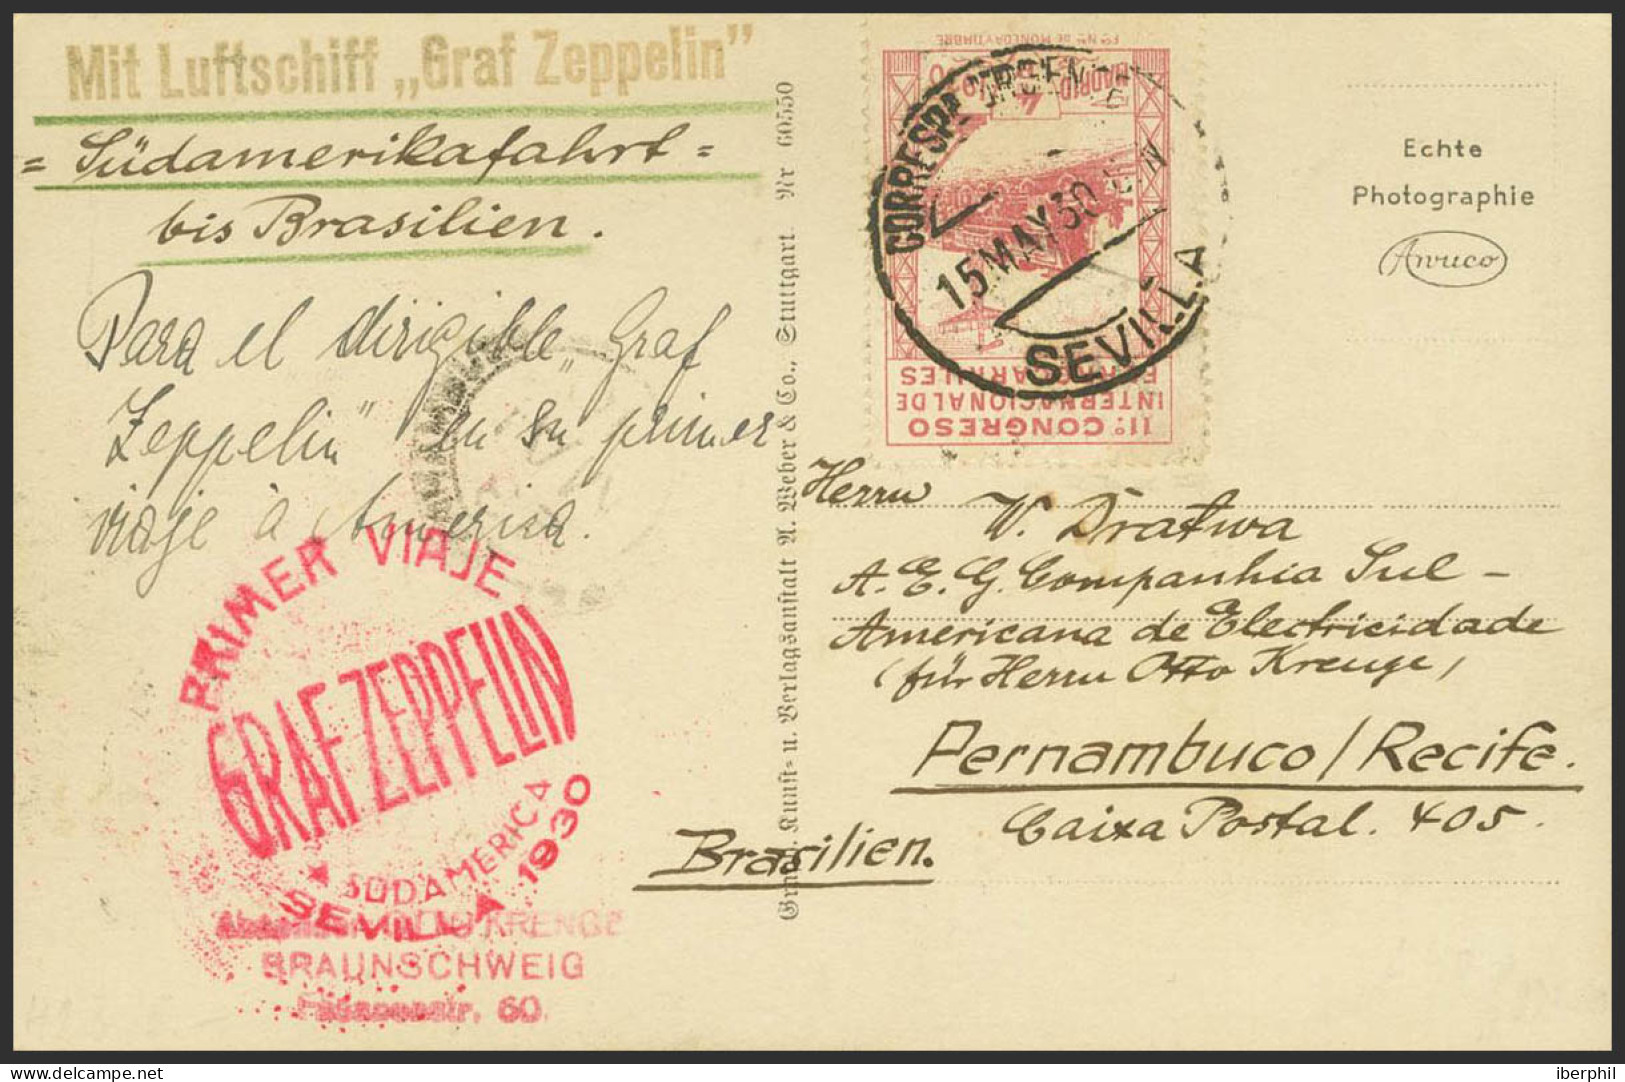 Mit Luftschiff „Graf Zeppelin"
= Südamerikafahrt =
bis Brasilien.
Para el dirigible „Graf
Zeppelin" en su primer
viaje à America.
PRIMER VIAJE
GRAF ZEPPELIN
SUDAMERICA
SEVILLA 1930
KRENGE
BRAUNSCHWEIG
60.
Kunst- u. Verlagsanstalt A. Weber & Co., Stuttgart. Nr 60550
Fª Nª DE MONEDA Y TIMBRE
MADRID
1930
11º CONGRESO
INTERNACIONAL DE
FERROCARRILES
15 MAY 30
SEVILLA
Echte
Photographie
Amuco
Herrn
W. Dratwa
A. E. G. Companhia Sul-
Americana de Electricidade
(für Herrn Otto Krenge)
Pernambuco/Recife.
Caixa Postal. 405.
Brasilien.
iberphil
delcampe.net